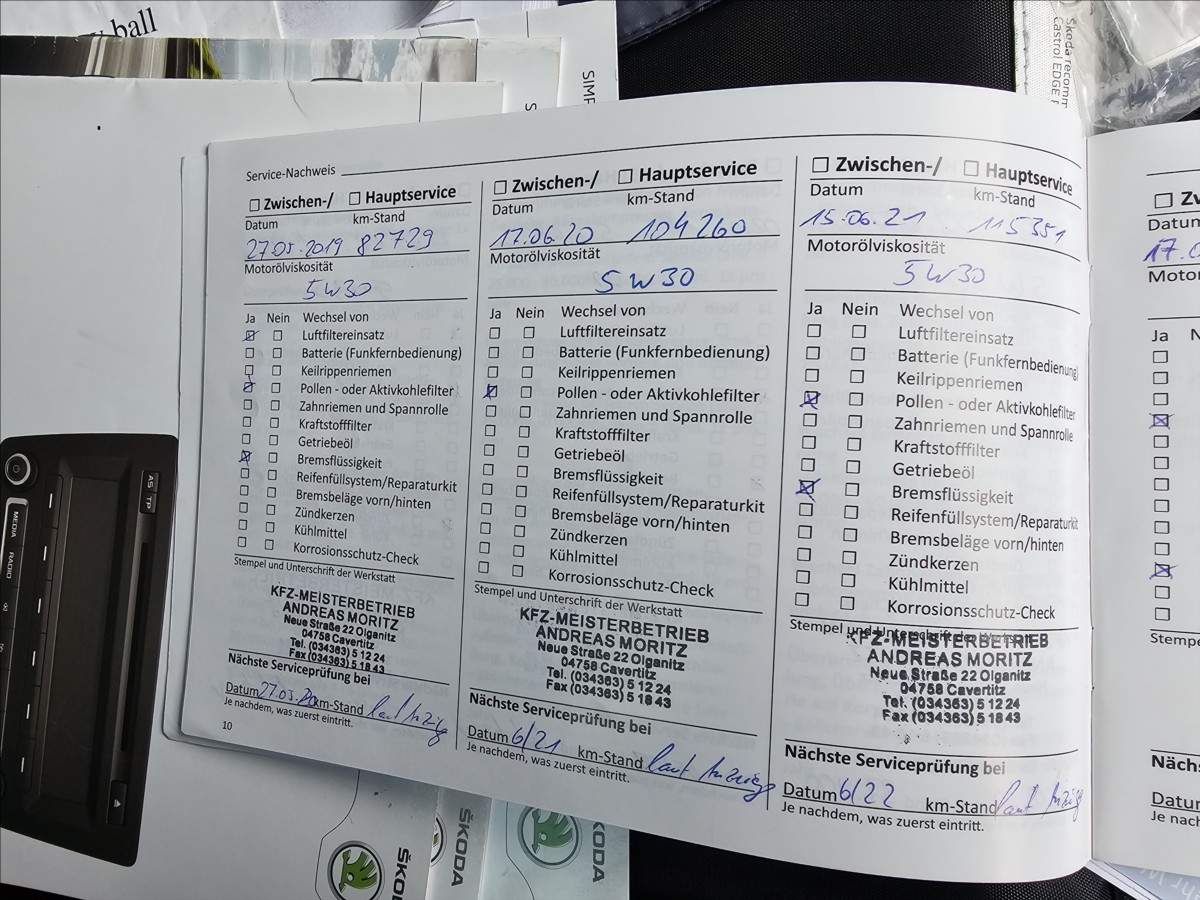 ball
SIMP
S
Škoda recomm
Castrol EDGE
Service-Nachweis
☐ Zwischen-/ ☐ Hauptservice
Datum km-Stand
27.05.2019 82729
Motorölviskosität
5W30
Ja Nein Wechsel von
Luftfiltereinsatz
Batterie (Funkfernbedienung)
Keilrippenriemen
Pollen - oder Aktivkohlefilter
Zahnriemen und Spannrolle
Kraftstofffilter
Getriebeöl
Bremsflüssigkeit
Reifenfüllsystem/Reparaturkit
Bremsbeläge vorn/hinten
Zündkerzen
Kühlmittel
Korrosionsschutz-Check
Stempel und Unterschrift der Werkstatt
KFZ-MEISTERBETRIEB
ANDREAS MORITZ
Neue Straße 22 Olganitz
04758 Cavertitz
Tel. (034363) 5 12 24
Fax (034363) 5 18 43
Nächste Serviceprüfung bei
Datum 27.05.20 km-Stand laut Anzeige
Je nachdem, was zuerst eintritt.
10
☐ Zwischen-/ ☐ Hauptservice
Datum km-Stand
17.06.20 104260
Motorölviskosität
5W30
Ja Nein Wechsel von
Luftfiltereinsatz
Batterie (Funkfernbedienung)
Keilrippenriemen
Pollen - oder Aktivkohlefilter
Zahnriemen und Spannrolle
Kraftstofffilter
Getriebeöl
Bremsflüssigkeit
Reifenfüllsystem/Reparaturkit
Bremsbeläge vorn/hinten
Zündkerzen
Kühlmittel
Korrosionsschutz-Check
Stempel und Unterschrift der Werkstatt
KFZ-MEISTERBETRIEB
ANDREAS MORITZ
Neue Straße 22 Olganitz
04758 Cavertitz
Tel. (034363) 5 12 24
Fax (034363) 5 18 43
Nächste Serviceprüfung bei
Datum 6/21 km-Stand laut Anzeige
Je nachdem, was zuerst eintritt.
☐ Zwischen-/ ☐ Hauptservice
Datum km-Stand
15.06.21 115351
Motorölviskosität
5W30
Ja Nein Wechsel von
Luftfiltereinsatz
Batterie (Funkfernbedienung)
Keilrippenriemen
Pollen - oder Aktivkohlefilter
Zahnriemen und Spannrolle
Kraftstofffilter
Getriebeöl
Bremsflüssigkeit
Reifenfüllsystem/Reparaturkit
Bremsbeläge vorn/hinten
Zündkerzen
Kühlmittel
Korrosionsschutz-Check
Stempel und Unterschrift der Werkstatt
KFZ-MEISTERBETRIEB
ANDREAS MORITZ
Neue Straße 22 Olganitz
04758 Cavertitz
Tel. (034363) 5 12 24
Fax (034363) 5 18 43
Nächste Serviceprüfung bei
Datum 6/22 km-Stand laut Anzeig
Je nachdem, was zuerst eintritt.
☐ Z
Datum
17.
Motor
Ja N
Stempe
Nächs
Datum
Je nach
AS TP
MEDIA
RADIO
ŠKOD
ŠKODA
KODA